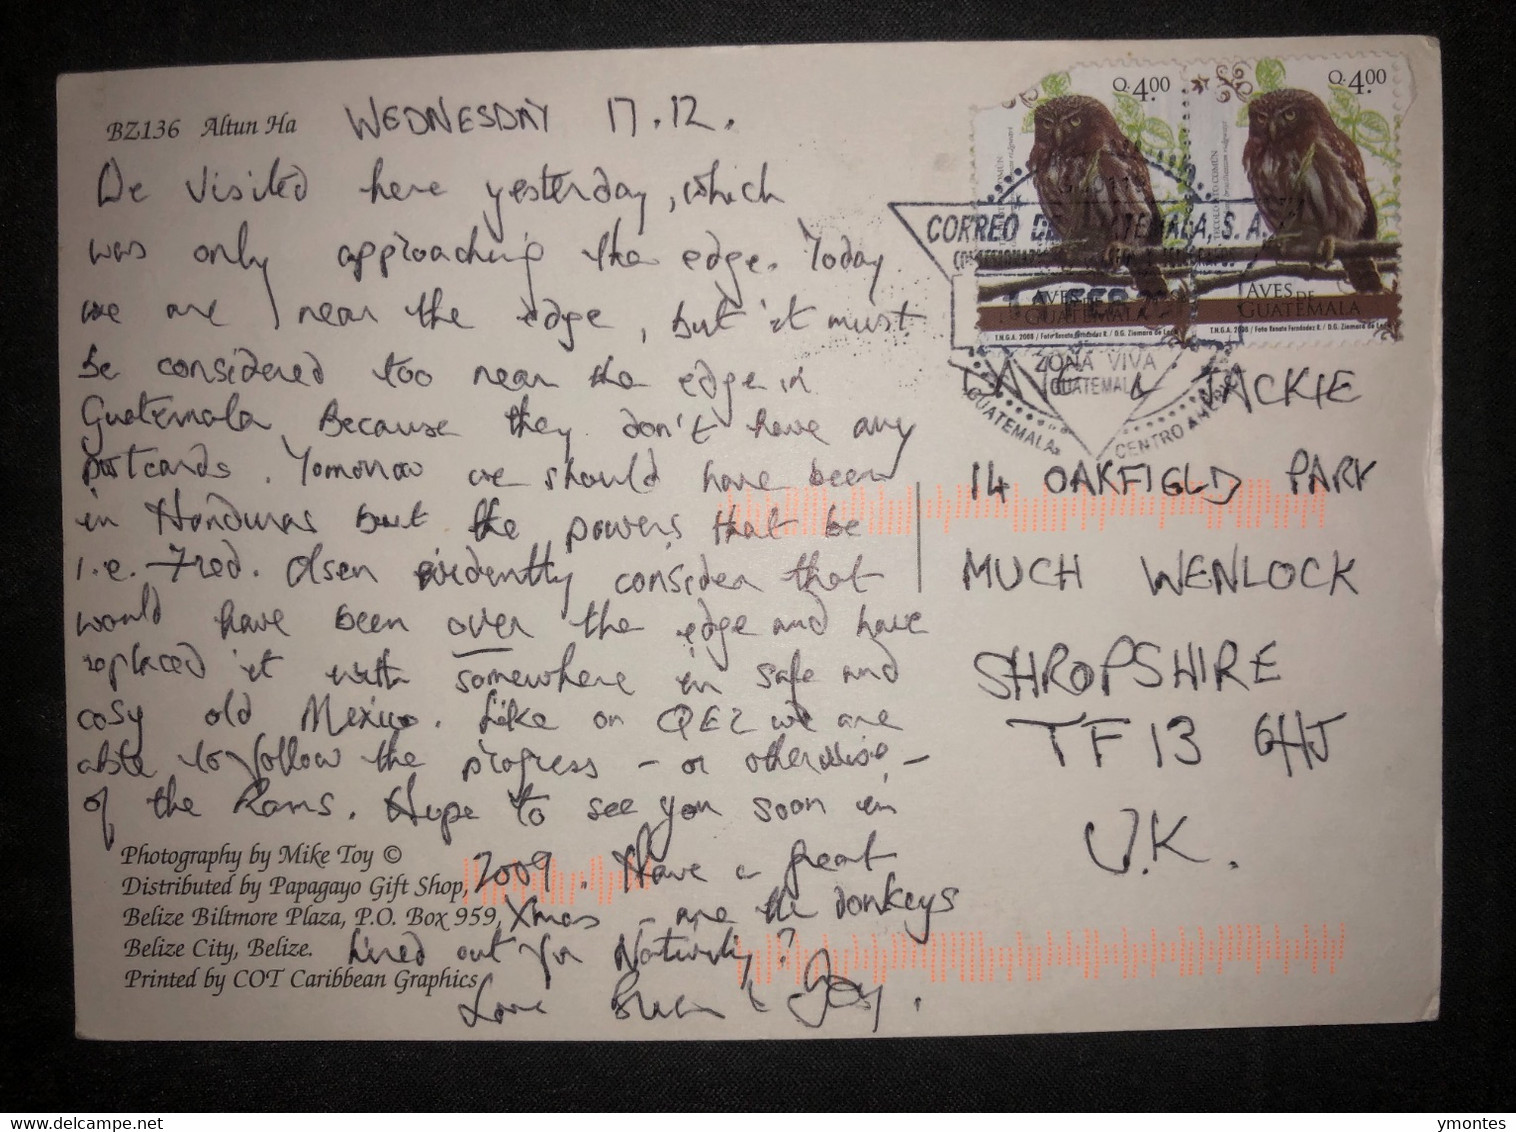 BZ136 Altun Ha
WEDNESDAY 17.12.
We visited here yesterday, which
was only approaching the edge. Today
we are near the edge, but it must
be considered too near the edge in
Guatemala because they don't have any
postcards. Tomorrow we should have been
in Honduras but the powers that be
i.e. Fred. Olsen evidently consider that
would have been over the edge and have
replaced it with somewhere in safe and
cosy old Mexico. Like on QE2 we are
able to follow the progress - or otherwise -
of the Rams. Hope to see you soon in
2009. Have a great
Xmas - are the donkeys
lined out for Nativity?
Love Brian & Joy.
Photography by Mike Toy ©
Distributed by Papagayo Gift Shop,
Belize Biltmore Plaza, P.O. Box 959,
Belize City, Belize.
Printed by COT Caribbean Graphics
Q.4.00
Q.4.00
TECOLOTITO COMÚN
AVES DE GUATEMALA
AVES DE GUATEMALA
T.N.G.A. 2009 / Foto Renato Fernández R. / D.G. Ziomara de León
T.N.G.A. 2009 / Foto Renato Fernández R. / D.G. Ziomara de León
CORREO DE GUATEMALA, S.A.
FEB
ZONA VIVA
GUATEMALA
GUATEMALA,
CENTRO AMERICA
& JACKIE
14 OAKFIELD PARK
MUCH WENLOCK
SHROPSHIRE
TF13 6HJ
U.K.
delcampe.net
ymontes